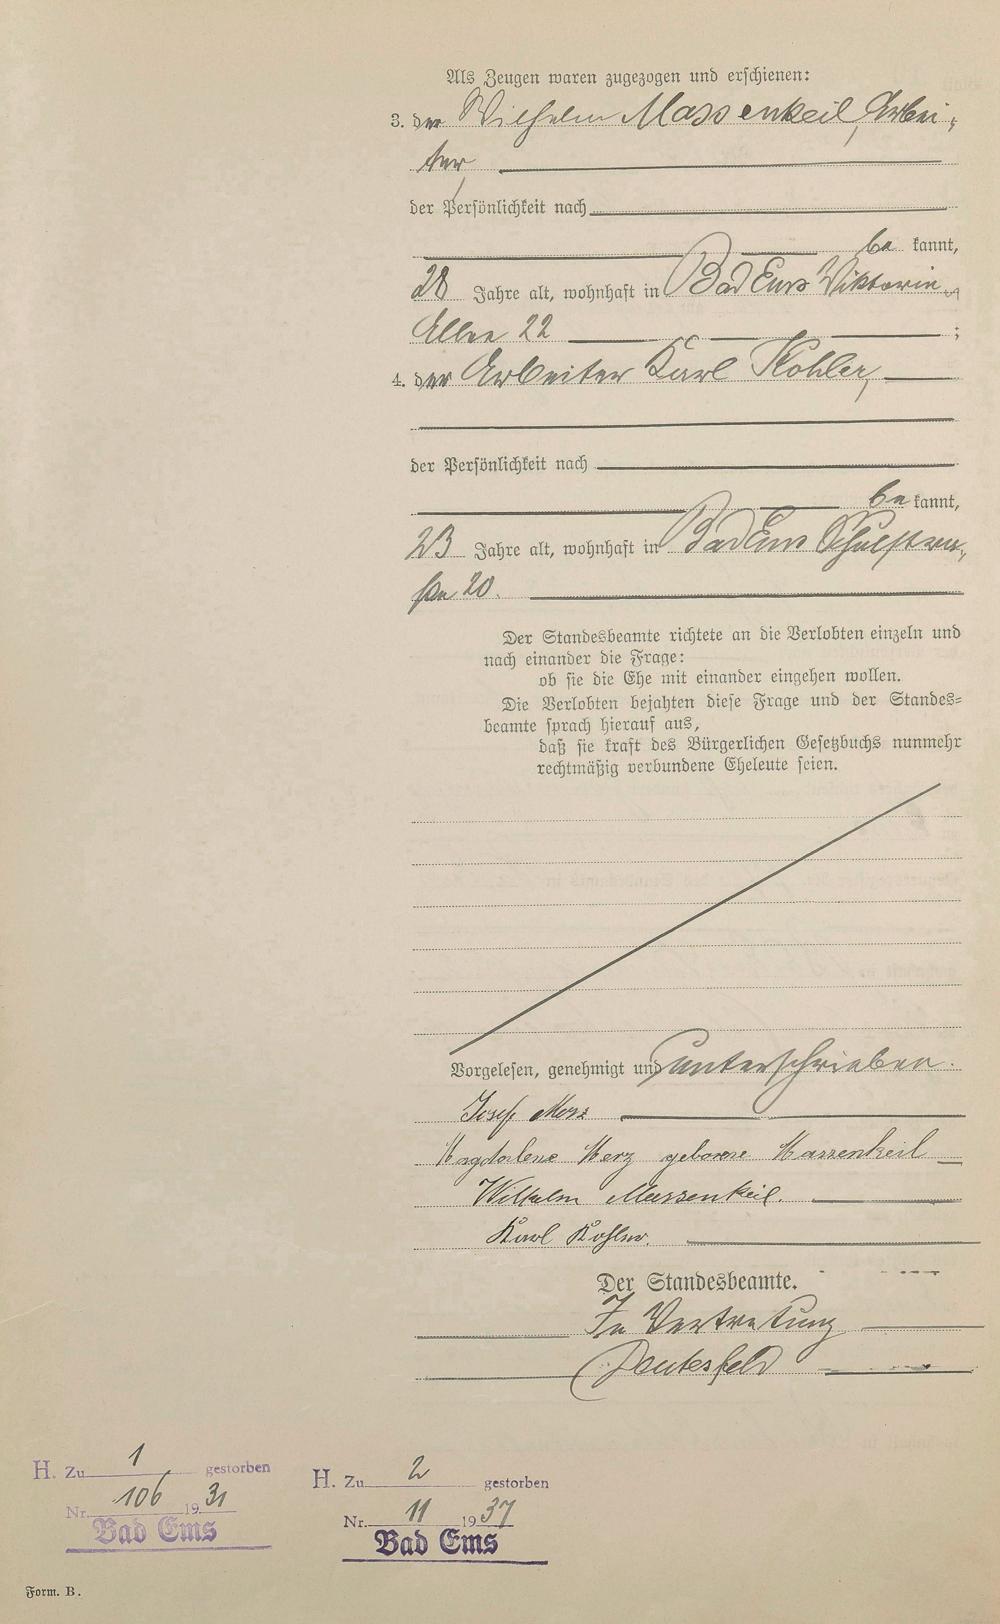 Als Zeugen waren zugezogen und erschienen:
3. der Wilhelm Massenkeil, Arbei-
ter,
der Persönlichkeit nach
be kannt,
28 Jahre alt, wohnhaft in Bad Ems Viktoria
Allee 22 ;
4. der Arbeiter Karl Kohler,
der Persönlichkeit nach
be kannt,
23 Jahre alt, wohnhaft in Bad Ems Schulstra-
ße 20.
Der Standesbeamte richtete an die Verlobten einzeln und
nach einander die Frage:
ob sie die Ehe mit einander eingehen wollen.
Die Verlobten bejahten diese Frage und der Standes-
beamte sprach hierauf aus,
daß sie kraft des Bürgerlichen Gesetzbuchs nunmehr
rechtmäßig verbundene Eheleute seien.
Vorgelesen, genehmigt und unterschrieben.
Josef Merz
Magdalene Merz geborene Massenkeil
Wilhelm Massenkeil.
Karl Kohler.
Der Standesbeamte.
In Vertretung
H. Zu 1 gestorben
Nr. 106 1931
Bad Ems
H. Zu 2 gestorben
Nr. 11 1937
Bad Ems
Form. B.